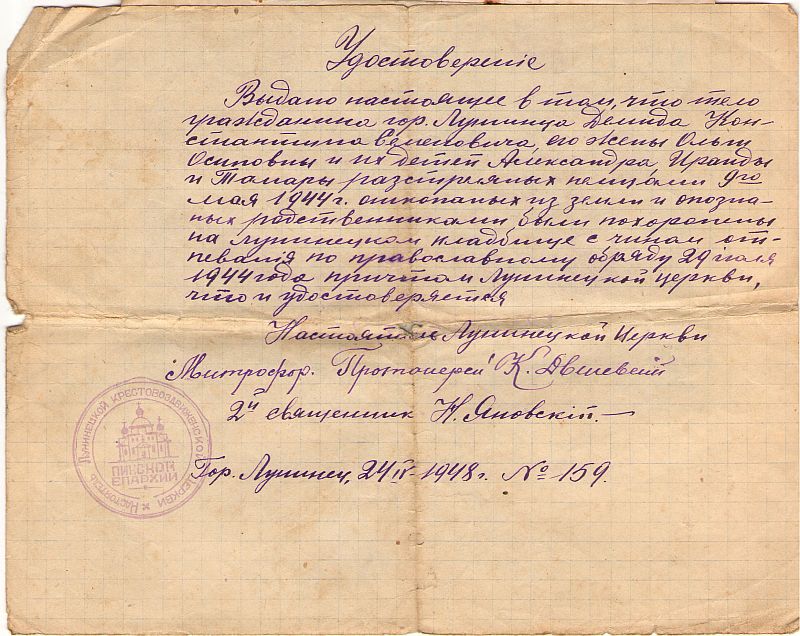 Удостоверенiе
Выдано настоящее в том, что тело
гражданина гор. Лунинца Демида Кон-
стантина Семеновича, его жены Ольги
Осиповны и их детей Александра Ираиды
и Тамары разстреляных немцами 9го
мая 1944 г. откопаных из земли и опозна-
ных родственниками были похоронены
на лунинецком кладбище с чином от-
певанiя по православному обряду 29 iюля
1944 года причтом Лунинецкой церкви,
что и удостоверяется
Настоятель Лунинецкой Церкви
Митрофор. Протоиерей К.
2й священник Н. Яновскiй.
Гор. Лунинец, 24 IV 1948 г. № 159.
Настоятель Лунинецкой Крестовоздвиженской церкви
Пинской
епархии